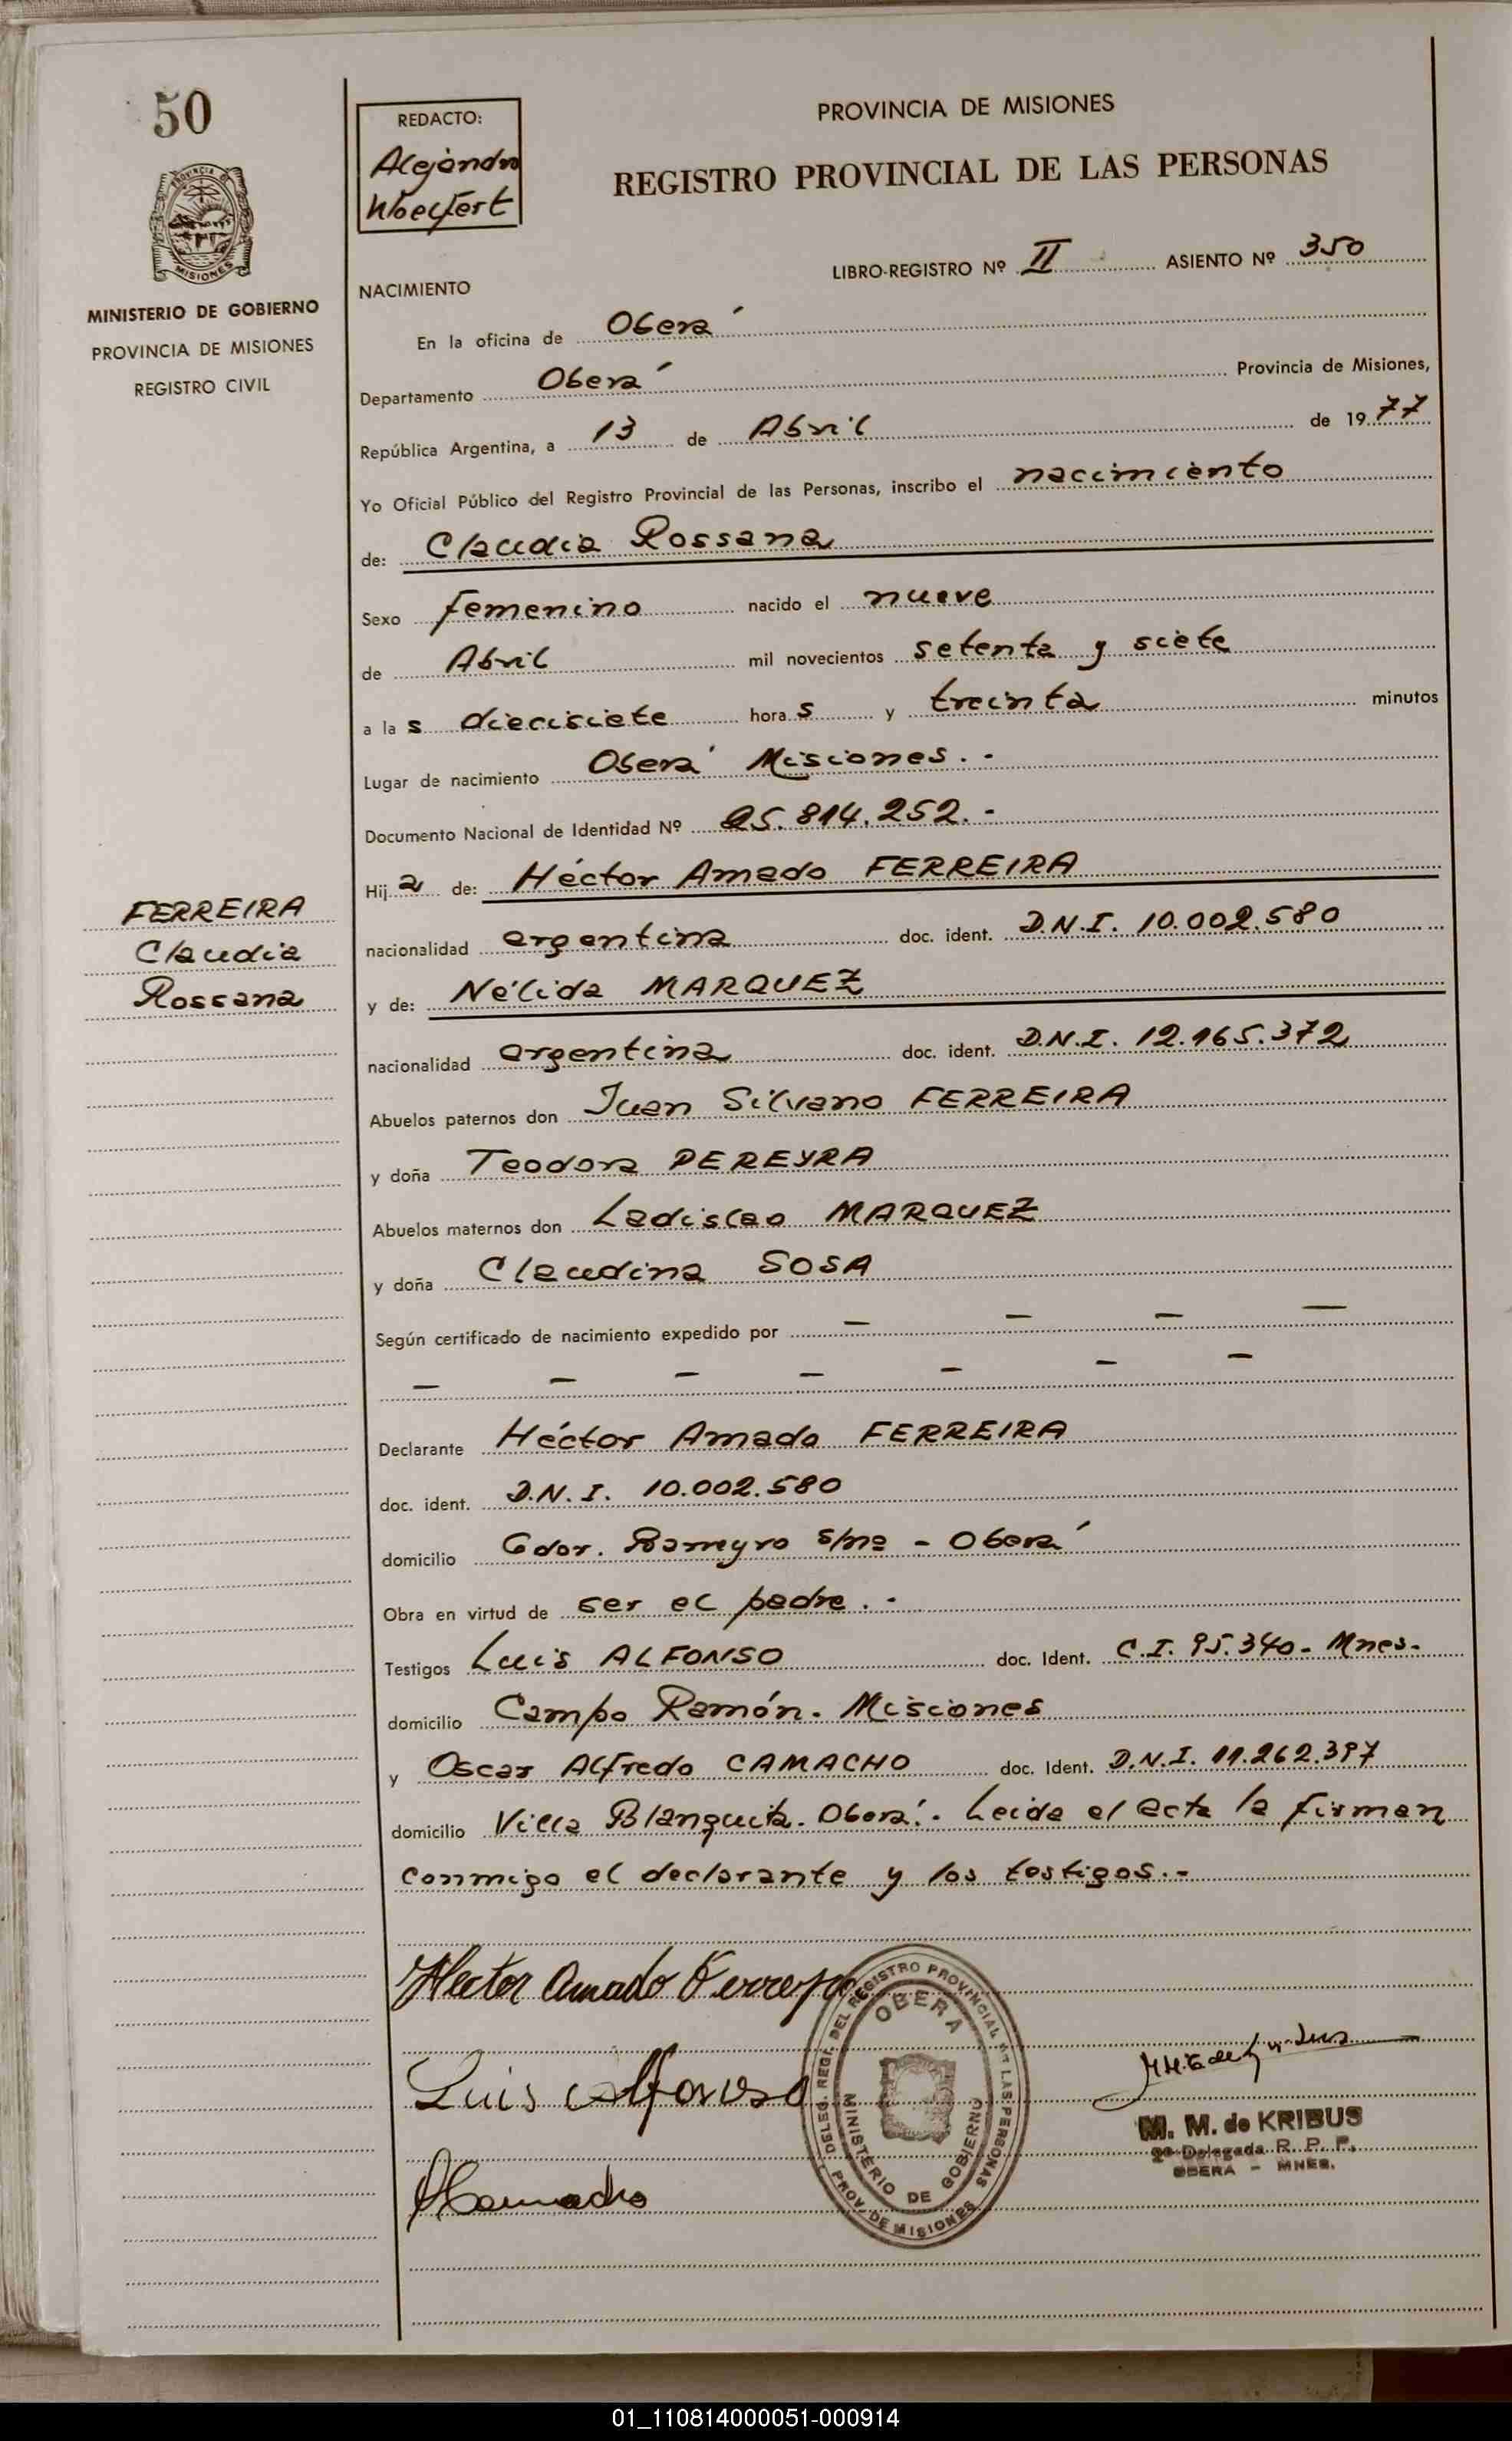 50
REDACTO:
Alejandro
Woelfert
PROVINCIA DE MISIONES
REGISTRO PROVINCIAL DE LAS PERSONAS
PROVINCIA DE
MISIONES
MINISTERIO DE GOBIERNO
PROVINCIA DE MISIONES
REGISTRO CIVIL
LIBRO-REGISTRO Nº II ASIENTO Nº 350
NACIMIENTO
En la oficina de Oberá
Departamento Oberá Provincia de Misiones,
República Argentina, a 13 de Abril de 1977
Yo Oficial Público del Registro Provincial de las Personas, inscribo el nacimiento
de: Claudia Rossana
Sexo femenino nacido el nueve
de Abril mil novecientos setenta y siete
a las diecisiete horas y treinta minutos
Lugar de nacimiento Oberá Misiones.-
Documento Nacional de Identidad Nº 25.814.252.-
Hija de: Héctor Amado FERREIRA
nacionalidad argentina doc. ident. D.N.I. 10.002.580
y de: Nélida MARQUEZ
nacionalidad argentina doc. ident. D.N.I. 12.165.372
Abuelos paternos don Juan Silvano FERREIRA
y doña Teodora PEREYRA
Abuelos maternos don Ladislao MARQUEZ
y doña Claudina SOSA
Según certificado de nacimiento expedido por — — — —
— — — — — — —
Declarante Héctor Amado FERREIRA
doc. ident. D.N.I. 10.002.580
domicilio Gdor. Barreyro s/nº - Oberá
Obra en virtud de ser el padre.-
Testigos Luis ALFONSO doc. Ident. C.I. 95.340.- Mnes.-
domicilio Campo Ramón. Misiones
y Oscar Alfredo CAMACHO doc. Ident. D.N.I. 11.262.397
domicilio Villa Blanquita. Oberá.- Leida el acta la firman
conmigo el declarante y los testigos.-
FERREIRA
Claudia
Rossana
Hector Amado Ferreyra
Luis Alfonso
Camacho
DELEG. REGI. DEL REGISTRO PROVINCIAL DE LAS PERSONAS
OBERA
MINISTERIO DE GOBIERNO
PROV. DE MISIONES
M. M. de KRIBUS
2ª Delegada R. P. P.
OBERA - MNES.
01_110814000051-000914